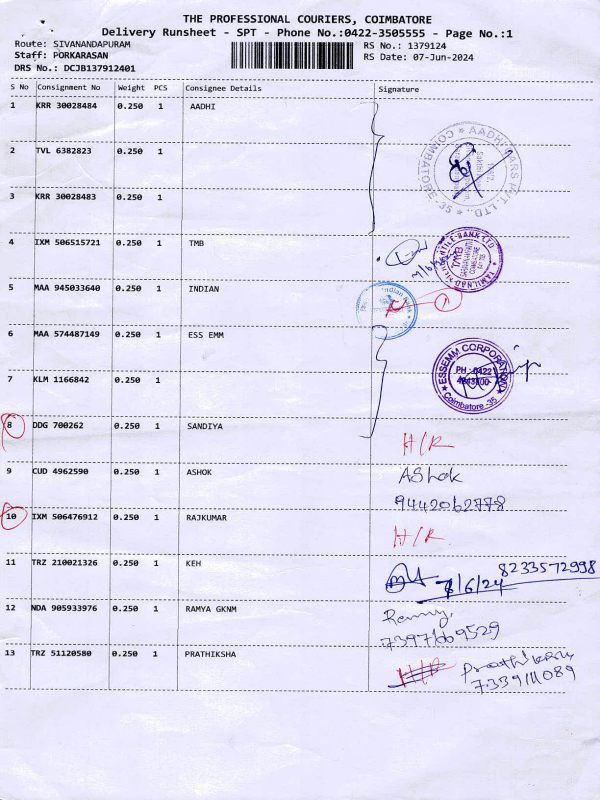 THE PROFESSIONAL COURIERS, COIMBATORE
Delivery Runsheet - SPT - Phone No.:0422-3505555 - Page No.:1
Route: SIVANANDAPURAM RS No.: 1379124
Staff: PORKARASAN RS Date: 07-Jun-2024
DRS No.: DCJB137912401
S No Consignment No Weight PCS Consignee Details Signature
1 KRR 30028484 0.250 1 AADHI
2 TVL 6382823 0.250 1
COIMBATORE-35 ★ AADHI CARS PVT. LTD ★
3 KRR 30028483 0.250 1
4 IXM 506515721 0.250 1 TMB
TAMILNAD MERCANTILE BANK LTD TMB
5 MAA 945033640 0.250 1 INDIAN
Indian Bank
1
6 MAA 574487149 0.250 1 ESS EMM
ESSEMM CORPORATION
PH : 0422
Coimbatore -35
7 KLM 1166842 0.250 1
8 DDG 700262 0.250 1 SANDIYA
H/R
9 CUD 4962590 0.250 1 ASHOK AShok
9442062778
10 IXM 506476912 0.250 1 RAJKUMAR
H/R
11 TRZ 210021326 0.250 1 KEH 8233572998
7/6/24
12 NDA 905933976 0.250 1 RAMYA GKNM
7397669529
13 TRZ 51120580 0.250 1 PRATHIKSHA H/R
7339111089